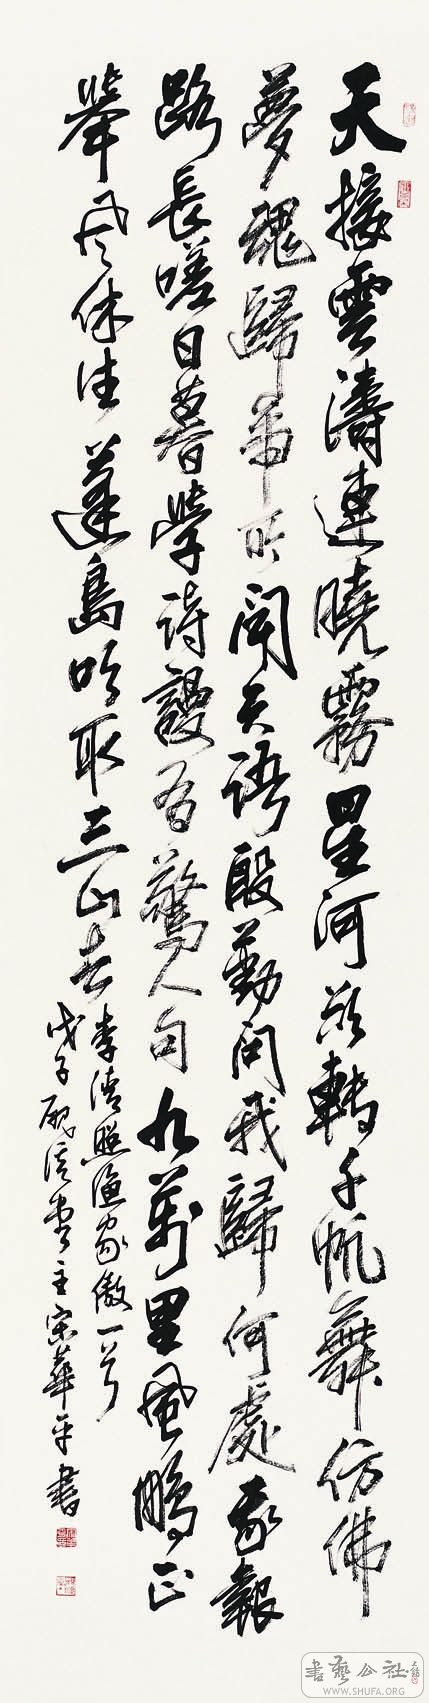 天接雲濤連曉霧星河欲轉千帆舞仿佛
夢魂歸帝所聞天語殷勤問我歸何處我報
路長嗟日暮學詩謾有驚人句九萬里風鵬正
舉風休住蓬島吹取三山去
李清照漁家傲一首
戊子堂主宋華平書
書藝公社
WWW.SHUFA.ORG